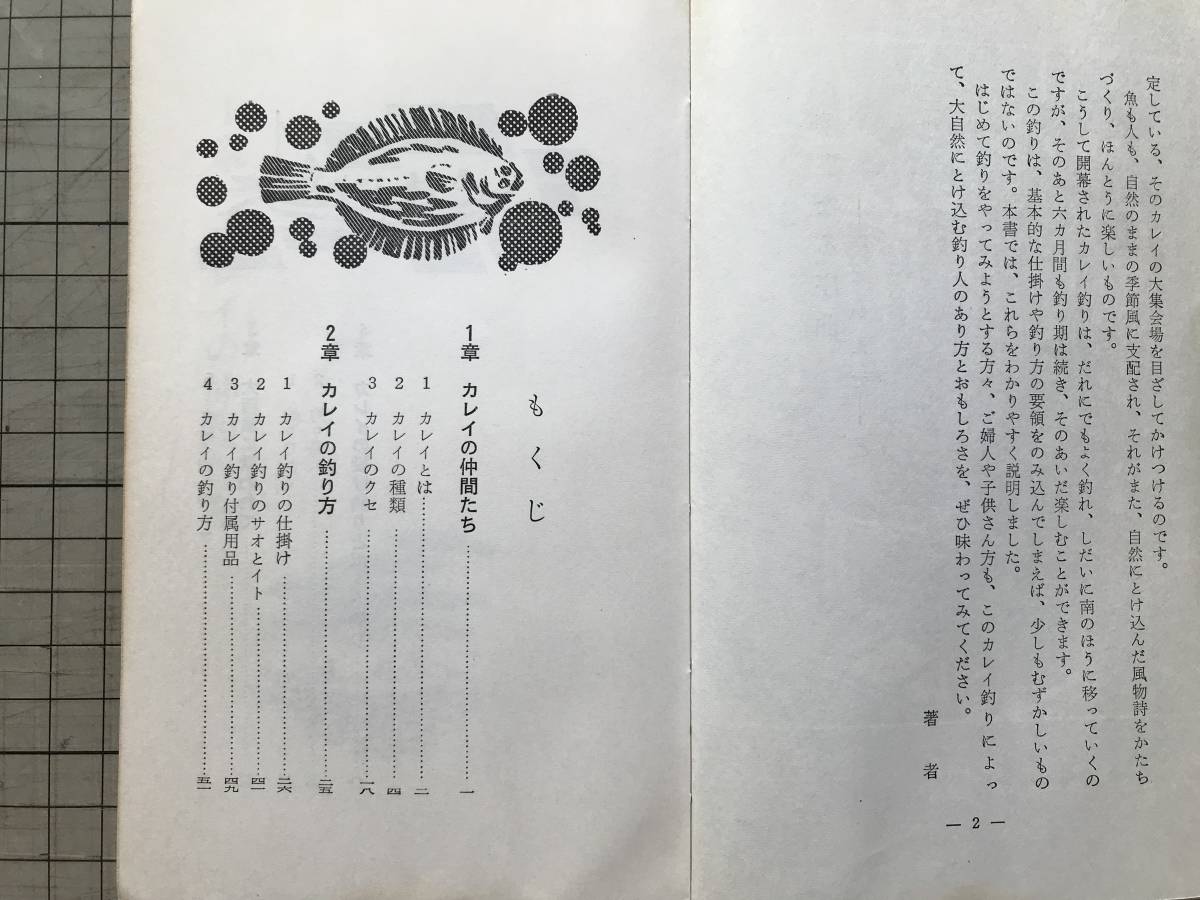 定している、そのカレイの大集会場を目ざしてかけつけるのです。
魚も人も、自然のままの季節風に支配され、それがまた、自然にとけ込んだ風物詩をかたち
づくり、ほんとうに楽しいものです。
こうして開幕されたカレイ釣りは、だれにでもよく釣れ、しだいに南のほうに移っていくの
ですが、そのあと六カ月間も釣り期は続き、そのあいだ楽しむことができます。
この釣りは、基本的な仕掛けや釣り方の要領をのみ込んでしまえば、少しもむずかしいもの
ではないのです。本書では、これらをわかりやすく説明しました。
はじめて釣りをやってみようとする方々、ご婦人や子供さん方も、このカレイ釣りによっ
て、大自然にとけ込む釣り人のあり方とおもしろさを、ぜひ味わってみてください。
著者
— 2 —
もくじ
1章 カレイの仲間たち……一
1 カレイとは……二
2 カレイの種類……四
3 カレイのクセ……一八
2章 カレイの釣り方……二五
1 カレイ釣りの仕掛け……二六
2 カレイ釣りのサオとイト……四一
3 カレイ釣り付属用品……四九
4 カレイの釣り方……五一